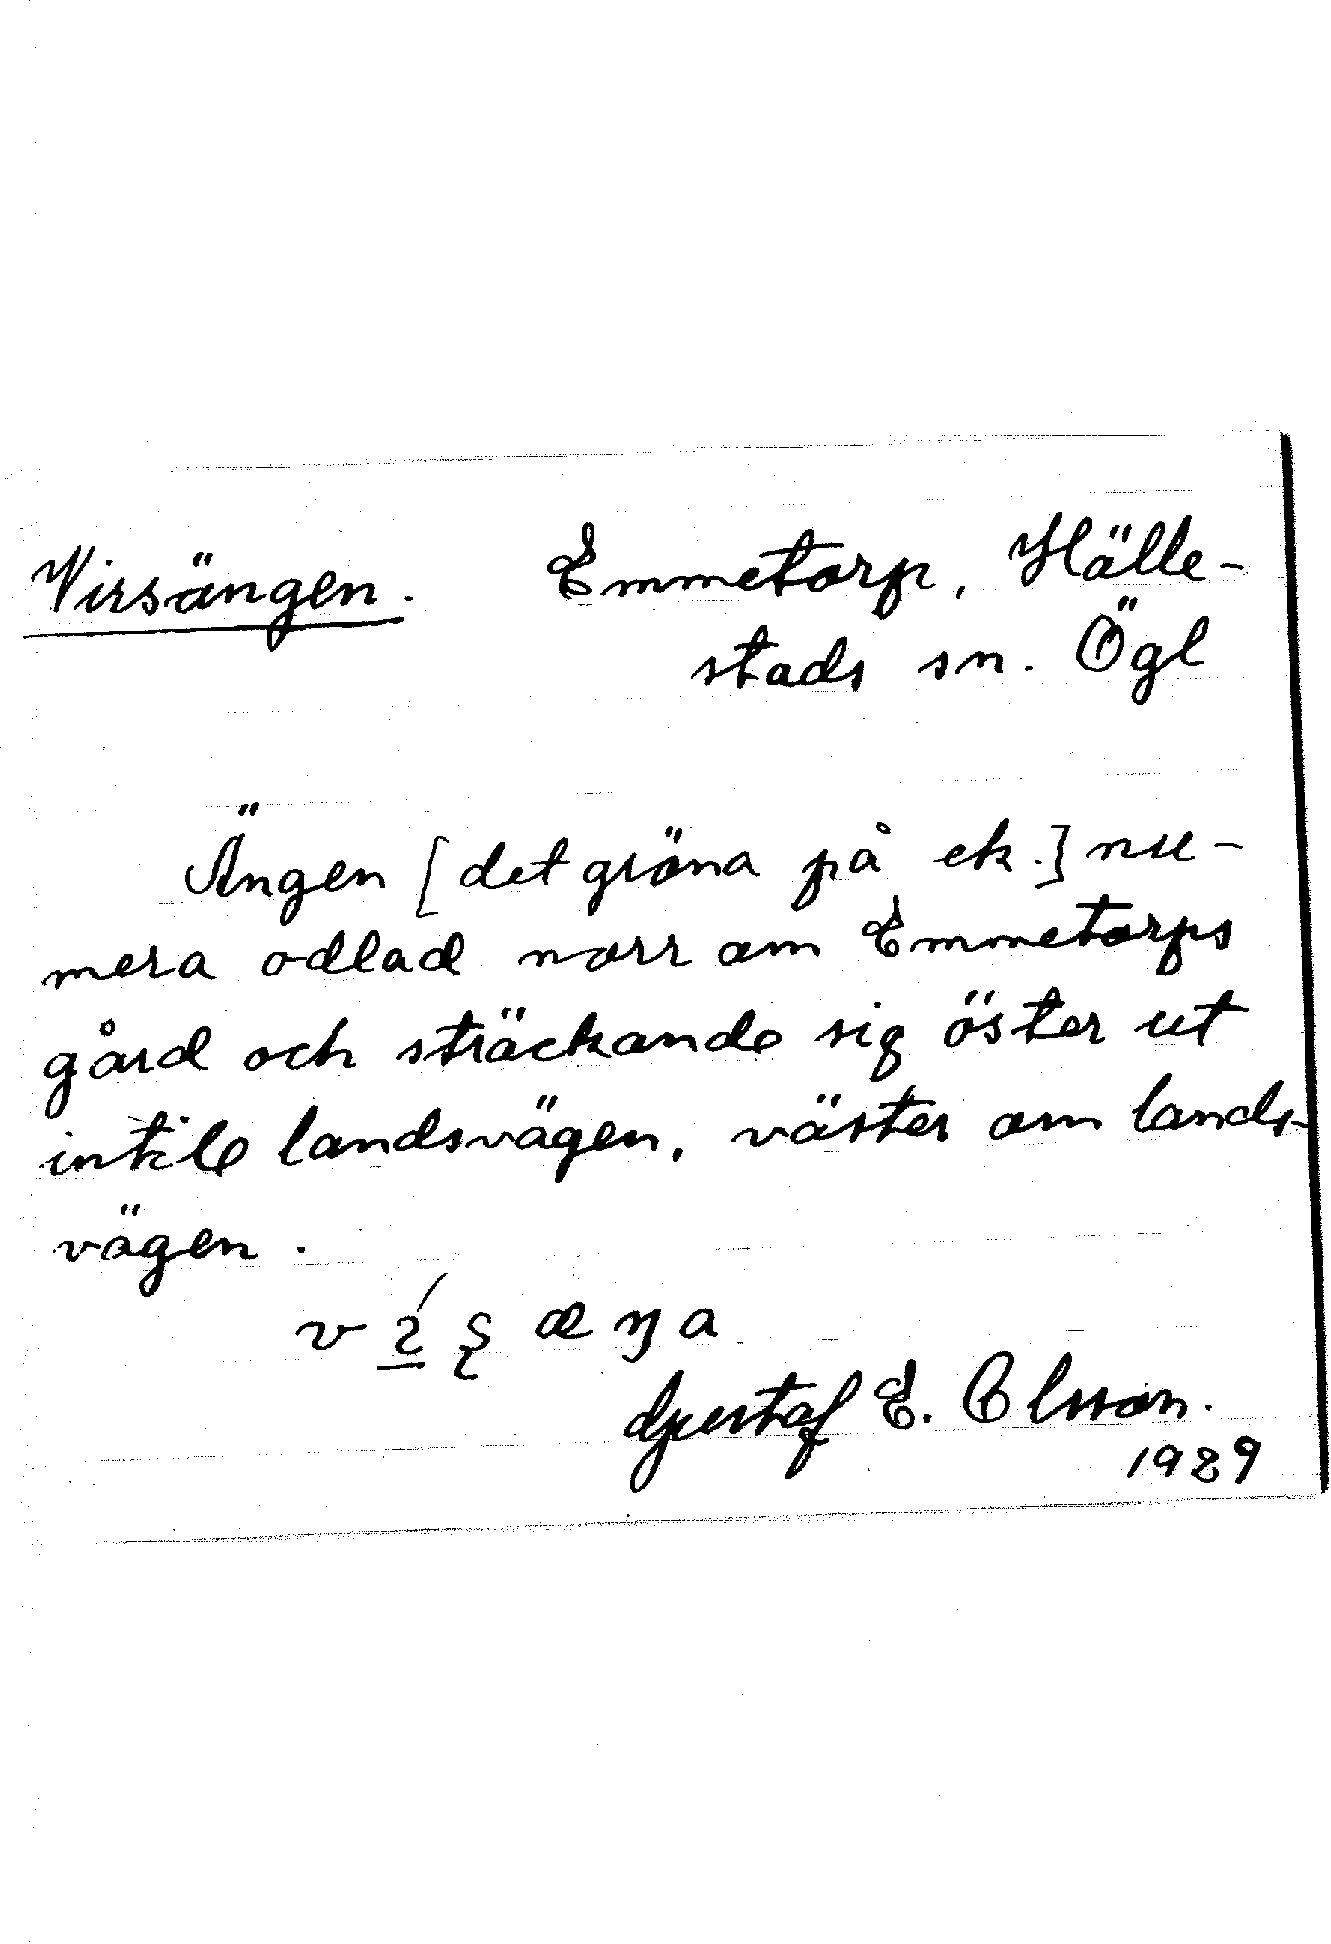 Virsängen. Emmetorp, Hälle-
stads sn. Ögl
Ängen [det gröna på ek.] nu-
mera odlad norr om Emmetorps
gård och sträckande sig öster ut
intill landsvägen, väster om lands-
vägen.
Gustaf E. Olsson.
1929